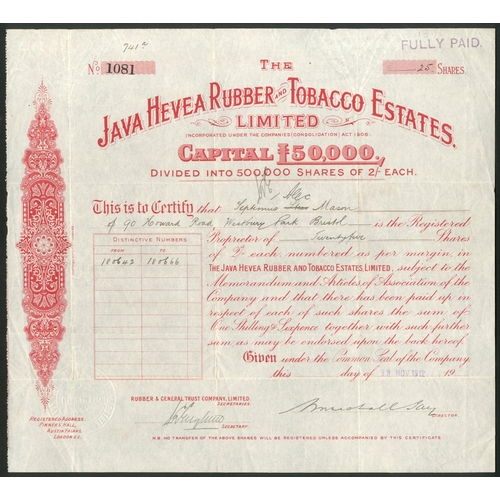 741
FULLY PAID.
No 1081
THE
25 SHARES
JAVA HEVEA RUBBER AND TOBACCO ESTATES.
LIMITED
(INCORPORATED UNDER THE COMPANIES (CONSOLIDATION) ACT 1908.
CAPITAL £50,000,
DIVIDED INTO 500,000 SHARES OF 2/- EACH.
This is to Certify that Septimus Alec Mason
of 90 Howard Road Westbury Park Bristol is the Registered
DISTINCTIVE NUMBERS
Proprietor of Twentyfive Shares
FROM TO
of 2/- each numbered as per margin, in
180642 180666
THE JAVA HEVEA RUBBER AND TOBACCO ESTATES, LIMITED, subject to the
Memorandum and Articles of Association of the
Company and that there has been paid up in
respect of each of such shares the sum of
One Shilling & Sixpence together with such further
sum as may be endorsed upon the back hereof.
Given under the Common Seal of the Company
this day of NOV 1912 19
RUBBER & GENERAL TRUST COMPANY, LIMITED.
SECRETARIES.
SECRETARY.
DIRECTOR.
REGISTERED ADDRESS,
PINNERS HALL,
AUSTIN FRIARS,
LONDON E.C.
N.B. NO TRANSFER OF THE ABOVE SHARES WILL BE REGISTERED UNLESS ACCOMPANIED BY THIS CERTIFICATE.